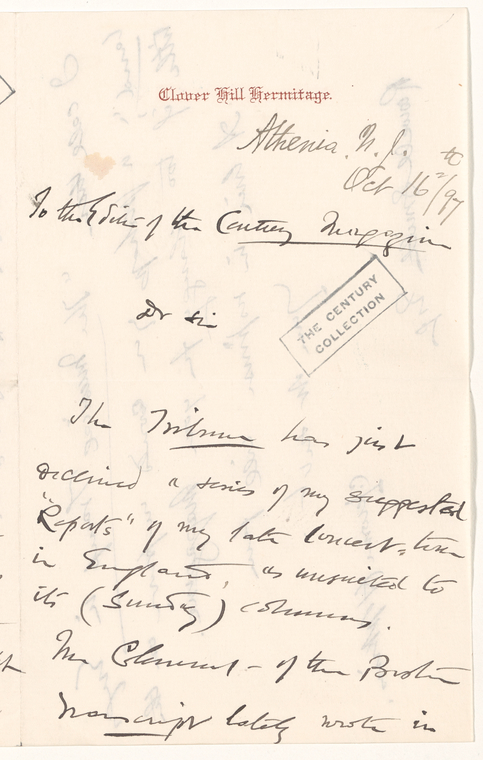 Clover Hill Hermitage.
Athenia. N. J.
Oct 16th/97
To the Editor of the Century Magazine
Dr Sir
THE CENTURY
COLLECTION
The Tribune has just
declined a series of my suggested
"Reports" of my late Concert-tour
in England, as unsuited to
its (Sunday) columns.
Mr Clement - of the Boston
Transcript lately wrote in